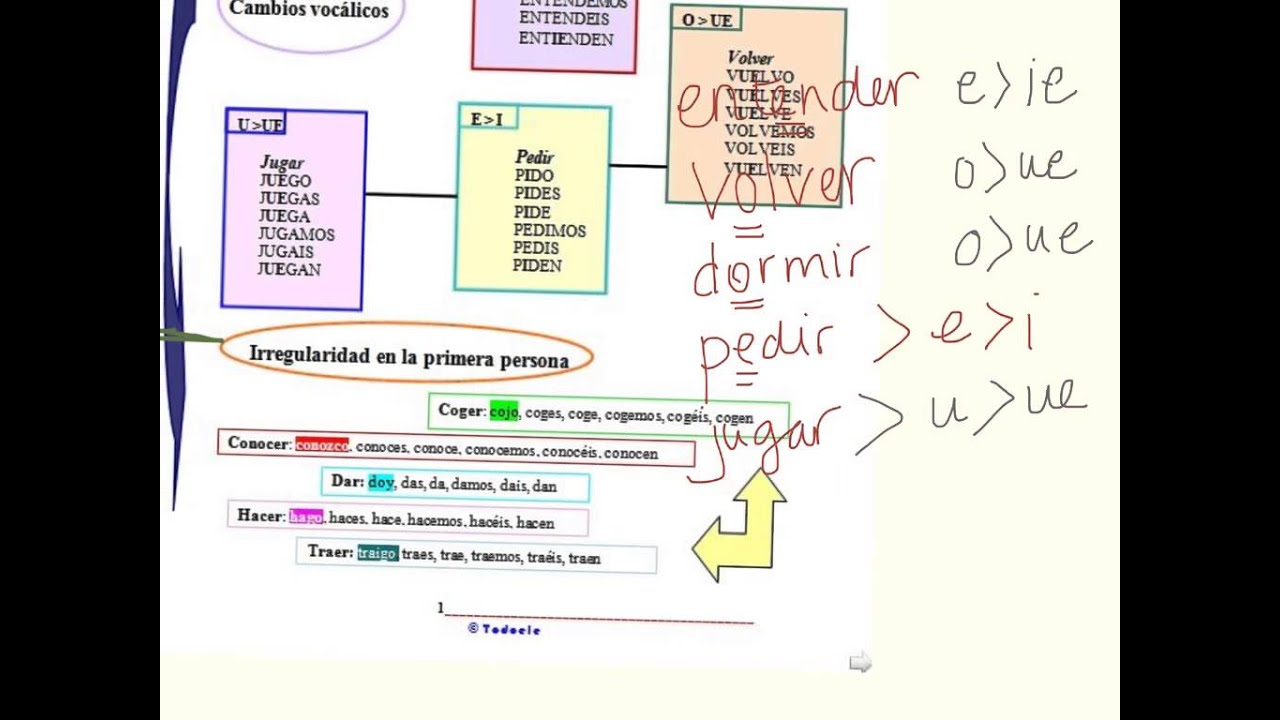 Cambios vocálicos
ENTENDEMOS
ENTENDEIS
ENTIENDEN
O>UE
Volver
VUELVO
VUELVES
VUELVE
VOLVEMOS
VOLVEIS
VUELVEN
U>UE
Jugar
JUEGO
JUEGAS
JUEGA
JUGAMOS
JUGAIS
JUEGAN
E>I
Pedir
PIDO
PIDES
PIDE
PEDIMOS
PEDIS
PIDEN
entender e>ie
volver o>ue
dormir o>ue
pedir > e>i
jugar > u>ue
Irregularidad en la primera persona
Coger: cojo, coges, coge, cogemos, cogéis, cogen
Conocer: conozco, conoces, conoce, conocemos, conocéis, conocen
Dar: doy, das, da, damos, dais, dan
Hacer: hago, haces, hace, hacemos, hacéis, hacen
Traer: traigo traes, trae, traemos, traéis, traen
1
© Todoele